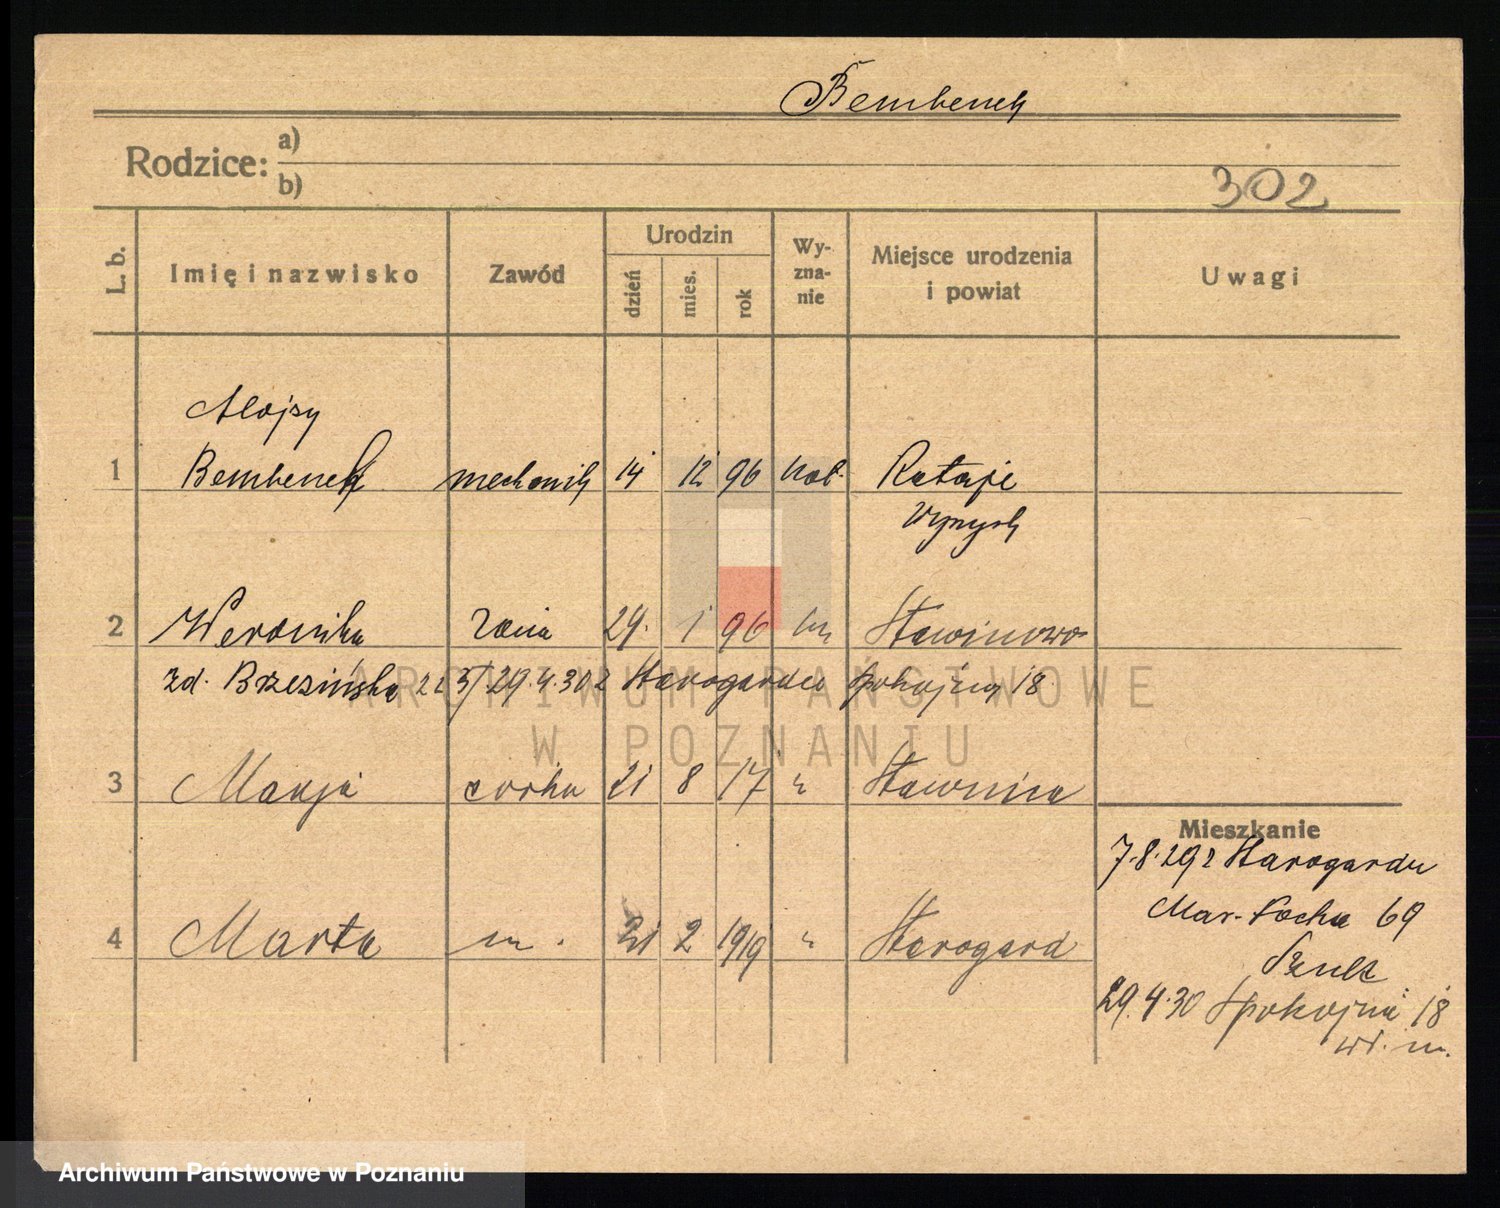 Bembenek
Rodzice: a)
b)
302
L. b. Imię i nazwisko Zawód Urodzin dzień mies. rok Wyznanie Miejsce urodzenia i powiat Uwagi
Alojzy
1 Bembenek mechanik 14 12 96 kat. Rataje
Wyrzysk
2 Weronika żona 29. 1 96 Stawinowo
zd. Brzezińska 29.4.30 z Starogardu Spokojna 18
3 Marja córka 21 8 17 " Stawnica
Mieszkanie
7.8.29 z Starogardu
Mar. Focha 69
Szulc
4 Marta 21 2 1919 " Starogard
29.4.30 Spokojna 18
ARCHIWUM PAŃSTWOWE
W POZNANIU
Archiwum Państwowe w Poznaniu